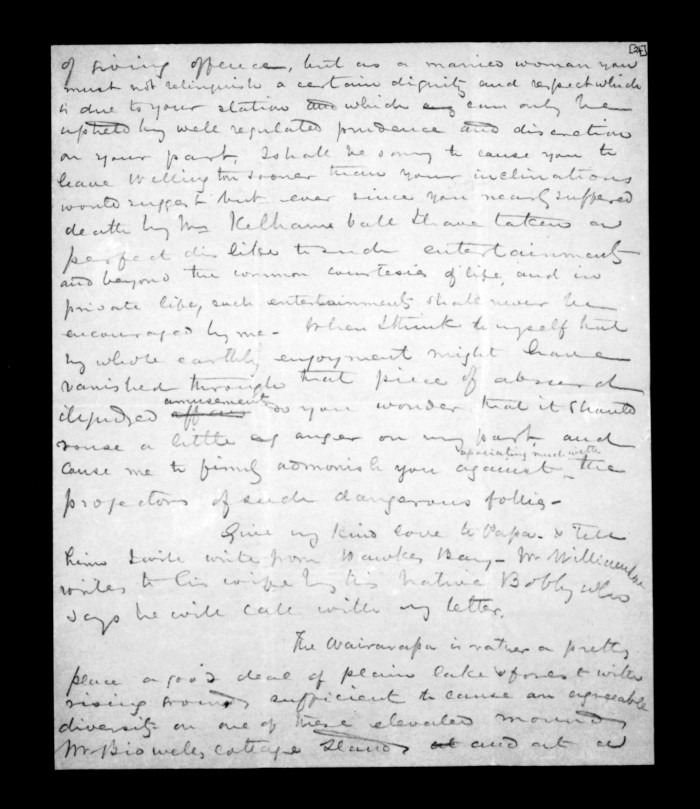 of giving offence, but as a married woman you
must not relinquish a certain dignity and respect which
is due to your station and which can only be
upheld by well regulated prudence and discretion
on your part, I shall be sorry to cause you to
leave Wellington sooner than your inclinations
would suggest but ever since you nearly suffered
death by Mrs Kelhams ball I have taken a
perfect dislike to such entertainments
and beyond the common courtesies of life, and in
private life, such entertainments shall never be
encouraged by me - When I think to myself that
my whole earthly enjoyment might have
vanished through that piece of absurd
amusement
do you wonder that it should
rouse a little anger on my part, and
associating much with
cause me to firmly admonish you against the
projectors of such dangerous follies -
Give my kind love to Papa - & Tell
him I will write from Hawkes Bay - Mr Williams
writes to his wife by his native Bobby who
says he will call with my letter.
The Wairarapa is rather a pretty
place a good deal of plain lake & forest with
rising grounds sufficient to cause an agreeable
diversity on one of these elevated mounds
Mr Bidwells cottage stands and at a